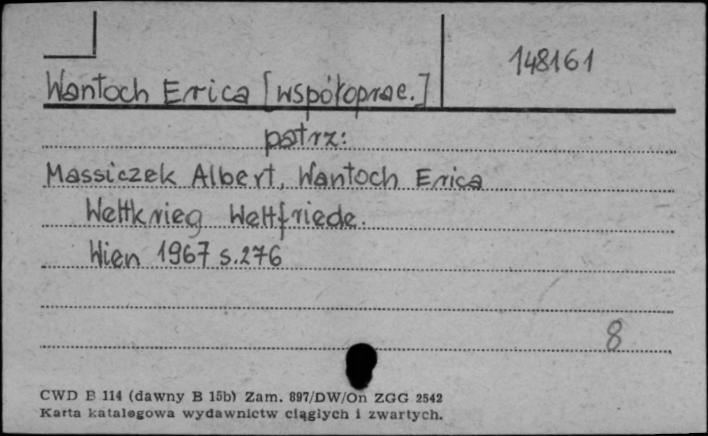 148161
Wantoch Erica [współoprac.]
patrz:
Massiczek Albert, Wantoch Erica
Weltkrieg Weltfriede.
Wien 1967 s.276
8
CWD B 114 (dawny B 15b) Zam. 897/DW/On ZGG 2542
Karta katalogowa wydawnictw ciągłych i zwartych.